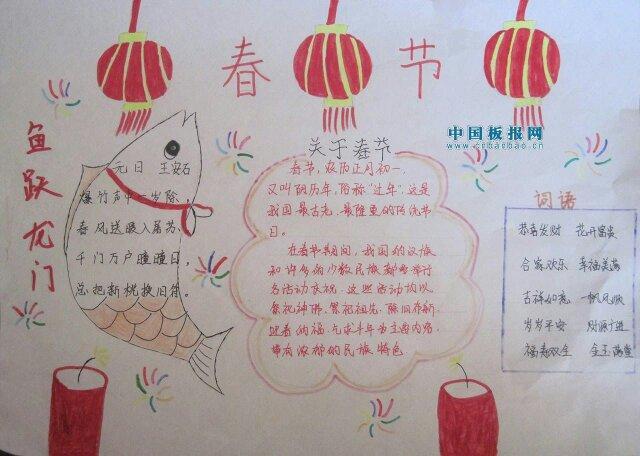 春节
中国板报网
www.cnbaobao.cn
鱼跃龙门
元日 王安石
爆竹声中一岁除
春风送暖入屠苏
千门万户曈曈日
总把新桃换旧符
关于春节
春节,农历正月初一,
又叫阴历年,俗称"过年"这是
我国最古老,最隆重的传统节
日。
在春节期间,我国的汉族
和许多的少数民族都要举行
各活动庆祝。这些活动均以
祭祀神佛、祭祀祖先、除旧布新、
迎春纳福、祈求丰年为主要内容。
带有浓郁的民族特色
词语
恭喜发财 花开富贵
合家欢乐 幸福美满
吉祥如意 一帆风顺
岁岁平安 财源广进
福寿双全 金玉满堂